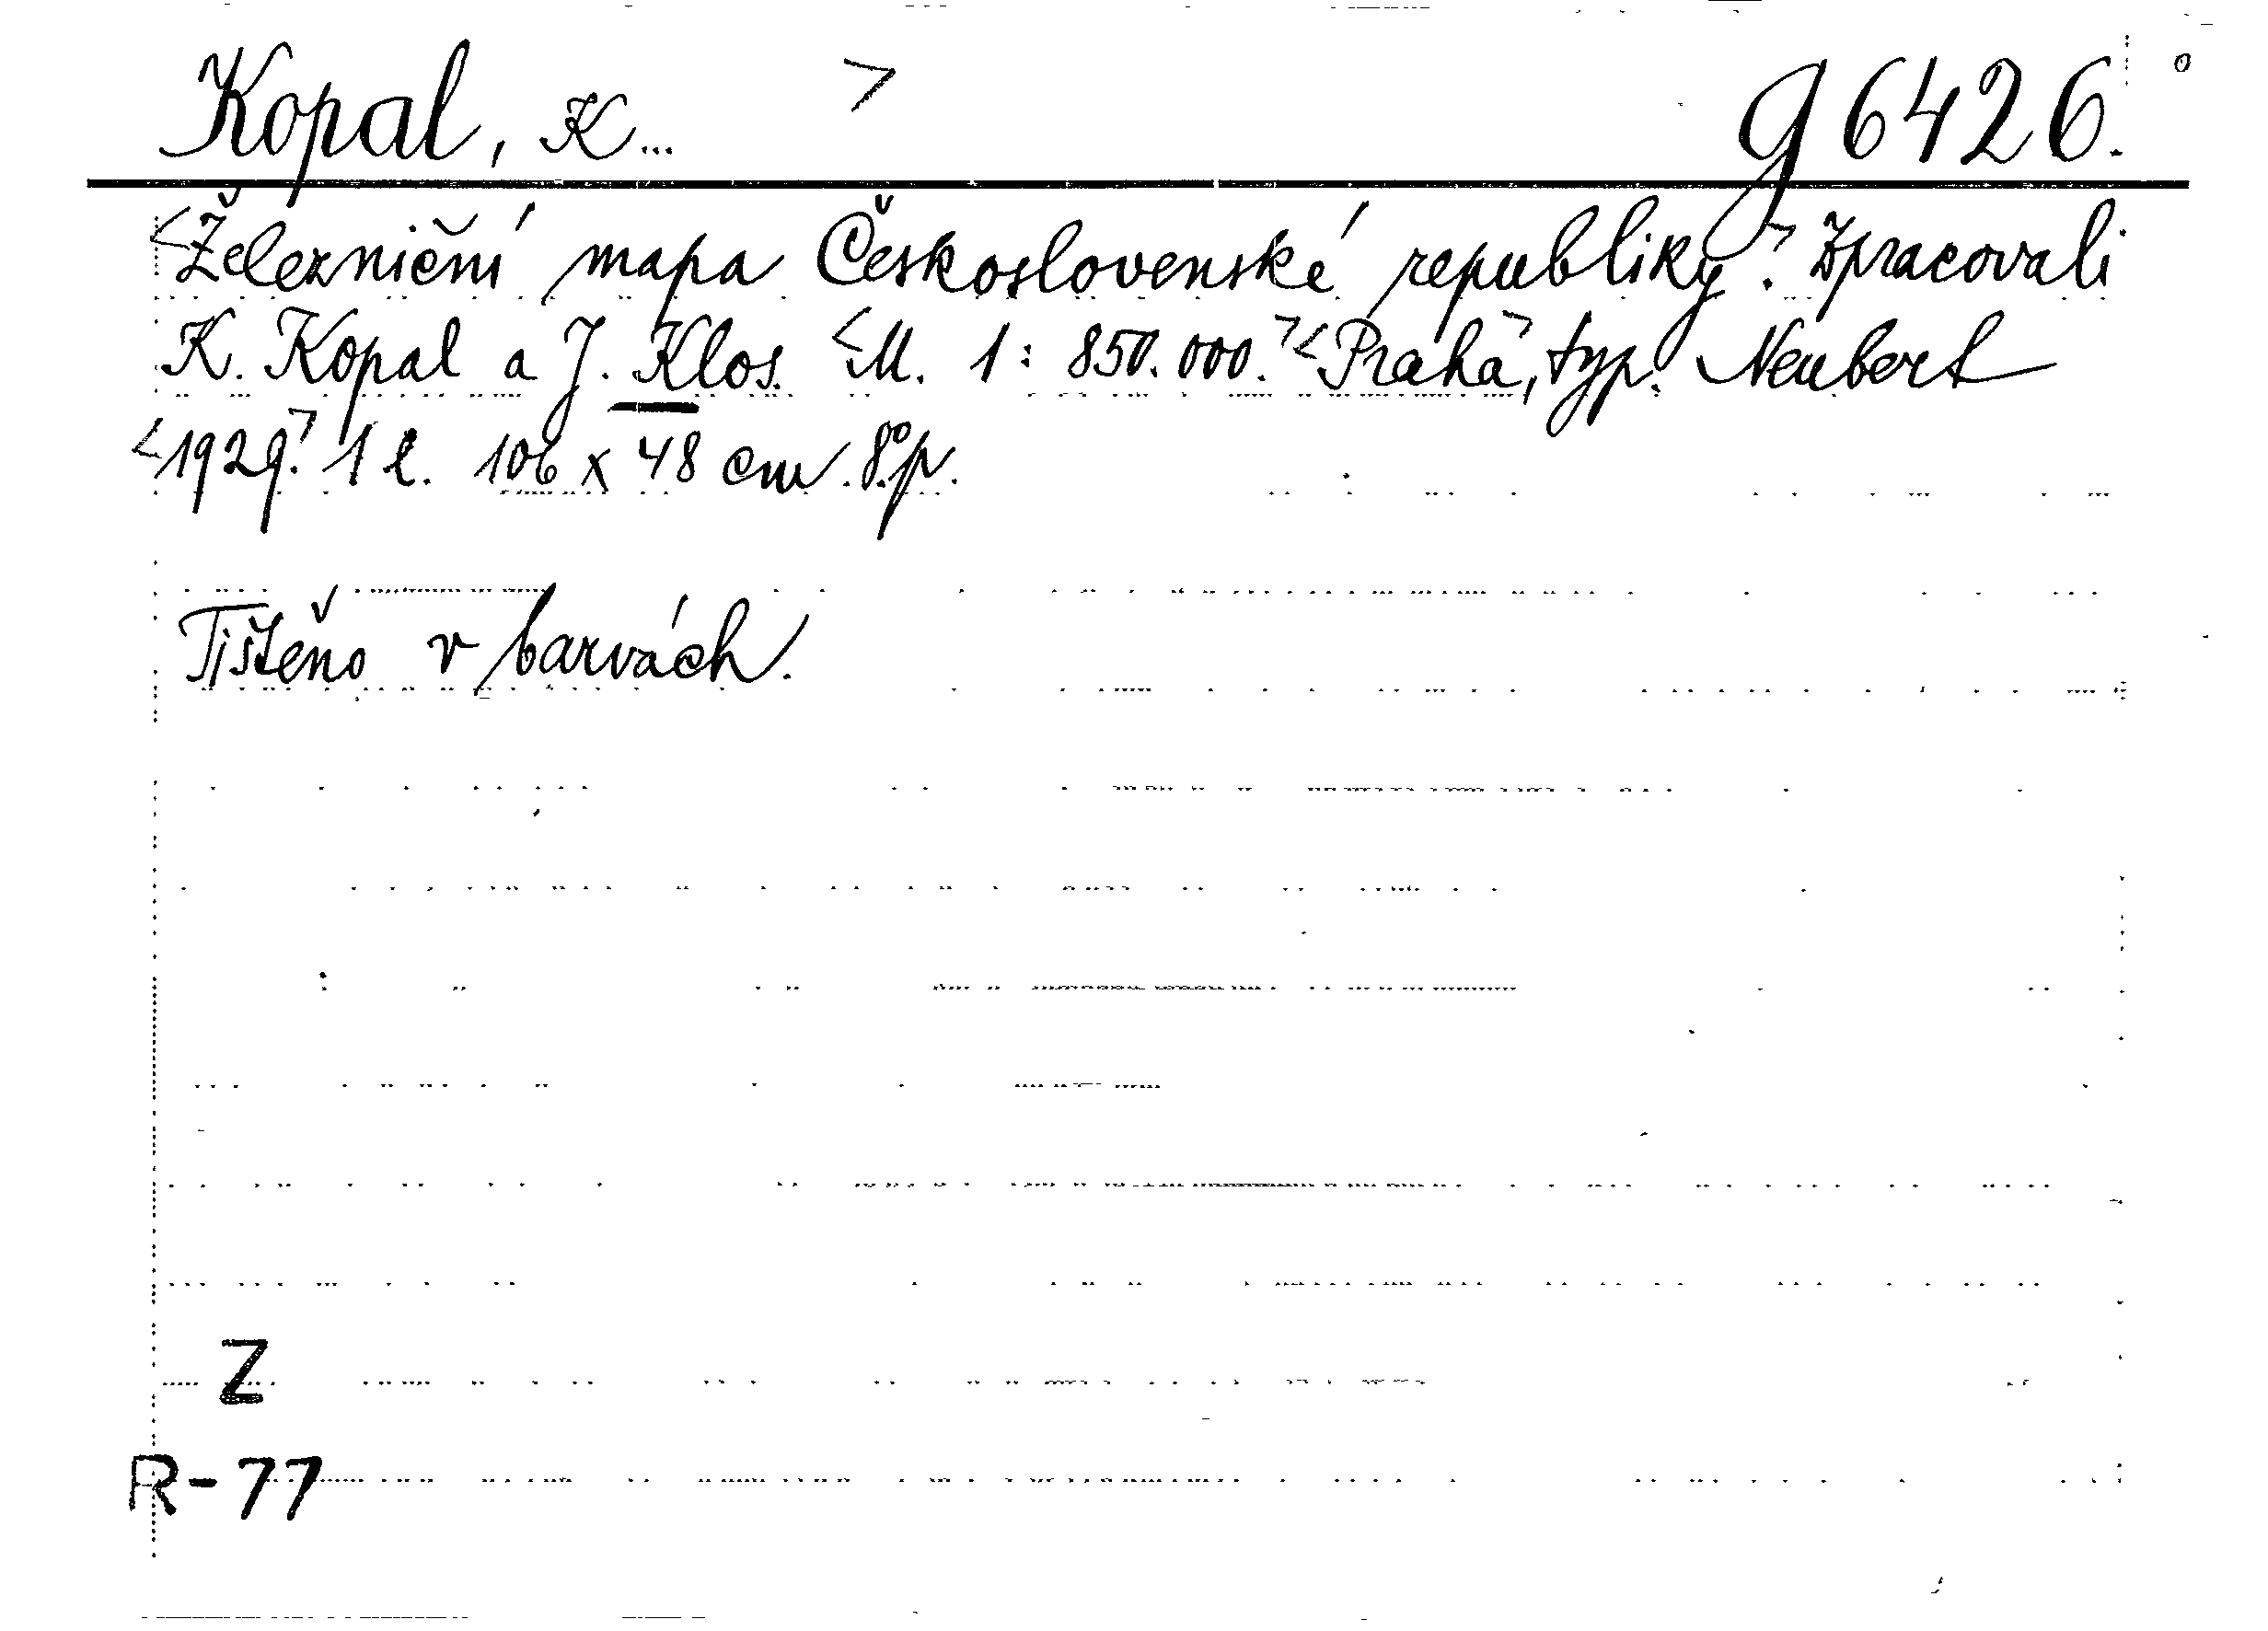 Kopal, K... > g 6426.
<Železniční mapa Československé republiky.> Zpracovali
K. Kopal a J. Klos. <M. 1 : 850.000.> <Praha>, typ. Neubert
<1929.> 1 l. 106 x 48 cm. 8°p.
Tištěno v barvách.
Z
R-77